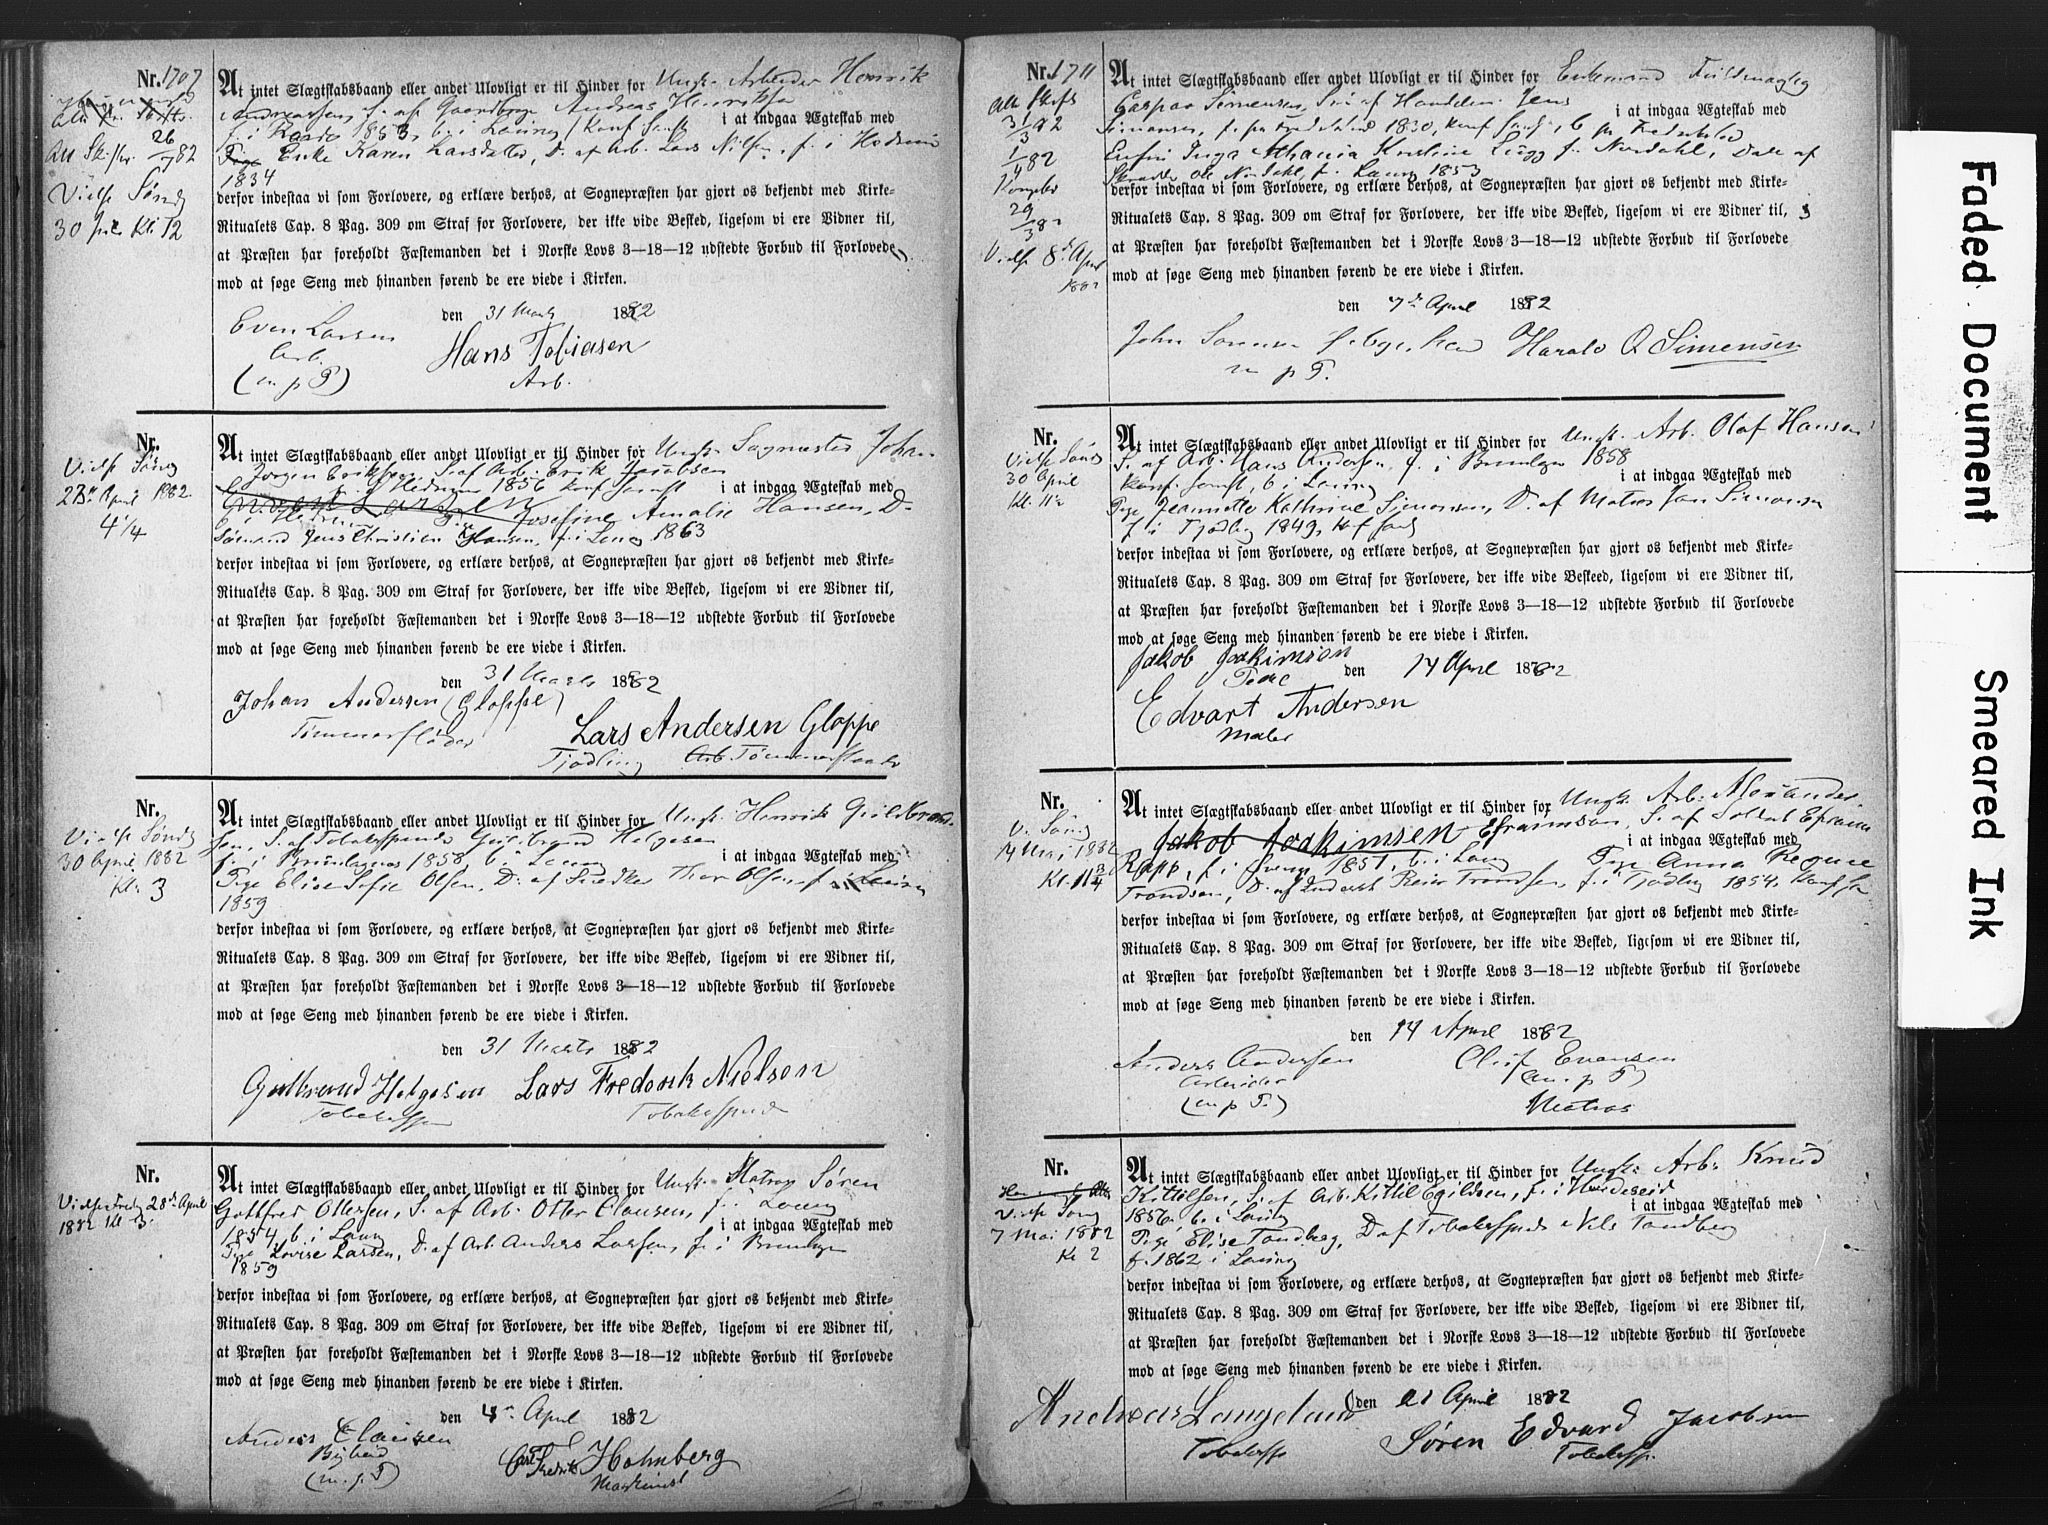 Nr. 1707
At intet Slægtskabsbaand eller andet Ulovligt er til Hinder for Ungk. Arbeider Henrik
Andreassen, S. af Gaardbrg. Andreas Henriks
f. i 1853, b. i Laurvig
i at indgaa Ægteskab med
Enke Karen Larsdatter, D. af Arb. Lars Nilsen, f. i Hedrum
1834
26/7 82
Vielse Sønd
30 Kl. 12
derfor indestaa vi som Forlovere, og erklære derhos, at Sognepræsten har gjort os bekjendt med Kirke-
Ritualets Cap. 8 Pag. 309 om Straf for Forlovere, der ikke vide Besked, ligesom vi ere Vidner til,
at Præsten har foreholdt Fæstemanden det i Norske Lovs 3—18—12 udstedte Forbud til Forlovede
mod at søge Seng med hinanden førend de ere viede i Kirken.
den 31 Marts 1882
Even Larsen
Arb.
(m. p. P)
Hans Tobiasen
Arb.
Nr.
Vielse Sønd
23de April 1882
4 1/4
At intet Slægtskabsbaand eller andet Ulovligt er til Hinder for Ungk. Sagmester Johan
Jørgen Eriksen S. af Arb. Erik Jacobsen
f. i Hedrum 1856
i at indgaa Ægteskab med
Josefine Amalie Hansen, D.
Sømand Jens Christian Hansen, f. i Laurv 1863
derfor indestaa vi som Forlovere, og erklære derhos, at Sognepræsten har gjort os bekjendt med Kirke-
Ritualets Cap. 8 Pag. 309 om Straf for Forlovere, der ikke vide Besked, ligesom vi ere Vidner til,
at Præsten har foreholdt Fæstemanden det i Norske Lovs 3—18—12 udstedte Forbud til Forlovede
mod at søge Seng med hinanden førend de ere viede i Kirken.
den 31 Marts 1882
Johan Andersen (Gloppe)
Tømmerfløder
Lars Andersen Gloppe
Tjødling Arb.
Nr.
Vielse Sønd
30 April 1882
Kl. 3
At intet Slægtskabsbaand eller andet Ulovligt er til Hinder for Ungk. Henrik Guldbrand-
sen, S. af Tobaksspinder Guldbrand Helgesen
f. i Brunlanes 1858, b. i Laurv
i at indgaa Ægteskab med
Pige Elise Sofie Olsen, D. af Snedker Thor Olsen, f. i Laurvig
1859
derfor indestaa vi som Forlovere, og erklære derhos, at Sognepræsten har gjort os bekjendt med Kirke-
Ritualets Cap. 8 Pag. 309 om Straf for Forlovere, der ikke vide Besked, ligesom vi ere Vidner til,
at Præsten har foreholdt Fæstemanden det i Norske Lovs 3—18—12 udstedte Forbud til Forlovede
mod at søge Seng med hinanden førend de ere viede i Kirken.
den 31 Marts 1882
Gulbrand Helgesen
Tobaksspin
Lars Frederik Nielsen
Tobaksspinder
Nr.
Vielse Fredag 28de April
1882
At intet Slægtskabsbaand eller andet Ulovligt er til Hinder for Ungk. Matros Søren
Gotfred Ottersen, S. af Arb. Otter Clausen, f. i Laurv
1854, b. i Laurv
i at indgaa Ægteskab med
Pige Lovise Larsen, D. af Arb. Anders Larsen, f. i Brunlan
1859
derfor indestaa vi som Forlovere, og erklære derhos, at Sognepræsten har gjort os bekjendt med Kirke-
Ritualets Cap. 8 Pag. 309 om Straf for Forlovere, der ikke vide Besked, ligesom vi ere Vidner til,
at Præsten har foreholdt Fæstemanden det i Norske Lovs 3—18—12 udstedte Forbud til Forlovede
mod at søge Seng med hinanden førend de ere viede i Kirken.
den April 1882
Anders Clausen
(m. p. P)
Carl Fredrik Holmberg
Maskinist
Nr. 1711
31/3 82
1/4 82
29/3 82
Vielse 8de April
1882
At intet Slægtskabsbaand eller andet Ulovligt er til Hinder for Enkemand Fuldmægtig
Caspar Simensen, Søn af Handelsm. Jens
i at indgaa Ægteskab med
Simensen, f. paa Fredrikstad 1830, b. paa Fredrikstad
Enkefru Inga Athania Kristine Lugg f. Nordahl, Datt. af
Skræder Ole Nordahl, f. Laurv 1853
derfor indestaa vi som Forlovere, og erklære derhos, at Sognepræsten har gjort os bekjendt med Kirke-
Ritualets Cap. 8 Pag. 309 om Straf for Forlovere, der ikke vide Besked, ligesom vi ere Vidner til,
at Præsten har foreholdt Fæstemanden det i Norske Lovs 3—18—12 udstedte Forbud til Forlovede
mod at søge Seng med hinanden førend de ere viede i Kirken.
den 7de April 1882
John
m p P.
Harald O Simensen
Nr.
Vielse Sønd
30 April
Kl. 11 1/2
At intet Slægtskabsbaand eller andet Ulovligt er til Hinder for Ungk. Arb. Olaf Hansen
S. af Arb. Hans Andersen, f. i Brunlan 1858
i at indgaa Ægteskab med
b. i Laurvig
Pige Jeannette Kathrine Simonsen, D. af Matros Jan Simonsen
f. i Tjødling 1849,
derfor indestaa vi som Forlovere, og erklære derhos, at Sognepræsten har gjort os bekjendt med Kirke-
Ritualets Cap. 8 Pag. 309 om Straf for Forlovere, der ikke vide Beskeed, ligesom vi ere Vidner til,
at Præsten har foreholdt Fæstemanden det i Norske Lovs 3—18—12 udstedte Forbud til Forlovede
mod at søge Seng med hinanden førend de ere viede i Kirken.
Jakob Joakimsen
den 14 April 1882
Edvart Andersen
Maler
Nr.
V. Sønd
14 Mai 1882
Kl. 11 3/4
At intet Slægtskabsbaand eller andet Ulovligt er til Hinder for Ungk. Arb. Alexander
Jakob Joakimsen Efraimsen, S. af Soldat Efraim
i at indgaa Ægteskab med
Rapp, f. i Sverige 1851, b. i Laurv Pige Anna Regine
Trondsen, D. af Reier Trondsen, f. i Tjødling 1854,
derfor indestaa vi som Forlovere, og erklære derhos, at Sognepræsten har gjort os bekjendt med Kirke-
Ritualets Cap. 8 Pag. 309 om Straf for Forlovere, der ikke vide Besked, ligesom vi ere Vidner til,
at Præsten har foreholdt Fæstemanden det i Norske Lovs 3—18—12 udstedte Forbud til Forlovede
mod at søge Seng med hinanden førend de ere viede i Kirken.
den 14 April 1882
Anders Andersen
Arbeider
(m p P.)
Oluf Evensen
(m. p P)
Matros
Nr.
Vielse Sønd
7 Mai 1882
Kl 2
At intet Slægtskabsbaand eller andet Ulovligt er til Hinder for Ungk. Arb. Knud
Kittilsen, S. af Arb. Kittil Egildsen, f. i Hvideseid
i at indgaa Ægteskab med
1856, b. i Laurvig
Pige Elise Tandberg, D. af Tobaksspinder Nils Tandberg
f. 1862 i Laurvig
derfor indestaa vi som Forlovere, og erklære derhos, at Sognepræsten har gjort os bekjendt med Kirke-
Ritualets Cap. 8 Pag. 309 om Straf for Forlovere, der ikke vide Besked, ligesom vi ere Vidner til,
at Præsten har foreholdt Fæstemanden det i Norske Lovs 3—18—12 udstedte Forbud til Forlovede
mod at søge Seng med hinanden førend de ere viede i Kirken.
den 21 April 1882
Andreas Langeland
Tobaksspi
Søren Edvard Jacobsen
Tobaksspi.
Faded Document
Smeared Ink